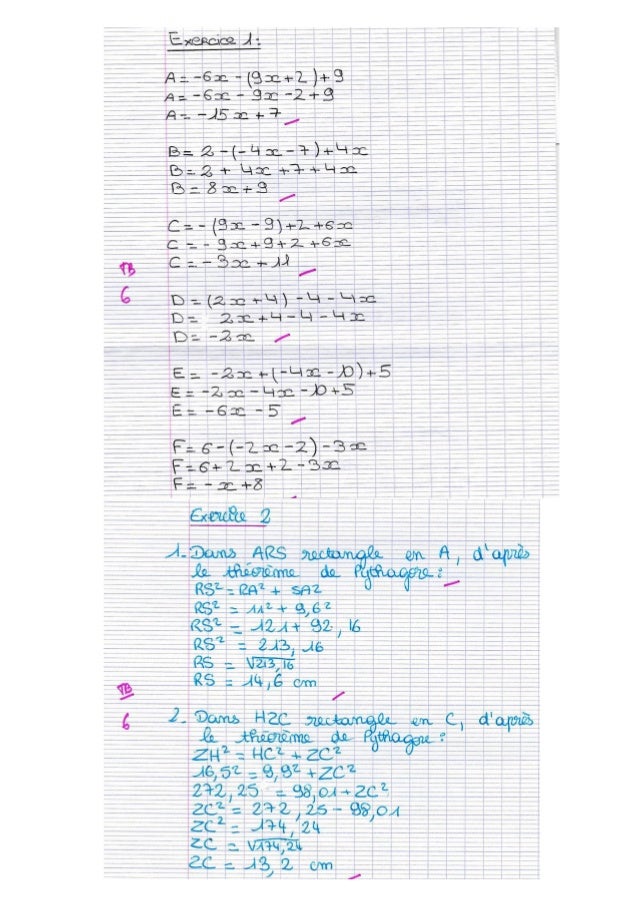 Exercice 1:
A = -6x - (9x+2)+9
A = -6x - 9x -2+9
A = -15x+7
B = 2-(-4x-7)+4x
B = 2 + 4x+7+4x
B = 8x+9
C = - (9x-9)+2+6x
C = - 9x+9+2+6x
C = - 3x+11
TB
6
D = (2x+4)-4-4x
D = 2x+4-4-4x
D = -2x
E = -2x+(-4x-10)+5
E = -2x-4x-10+5
E = -6x-5
F = 6-(-2x-2)-3x
F = 6+2x+2-3x
F = -x+8
Exercice 2
1. Dans ARS rectangle en A, d'après
le théorème de Pythagore:
RS² = RA² + SA2
RS² = 11² + 9,6²
RS² = 121 + 92,16
RS² = 213,16
RS = √213,16
RS = 14,6 cm
TB
6
2. Dans HZC rectangle en C, d'après
le théorème de Pythagore:
ZH² = HC² + ZC²
16,5² = 9,9² + ZC²
272,25 = 98,01 + ZC²
ZC² = 272,25 - 98,01
ZC² = 174,24
ZC = √174,24
ZC = 13,2 cm